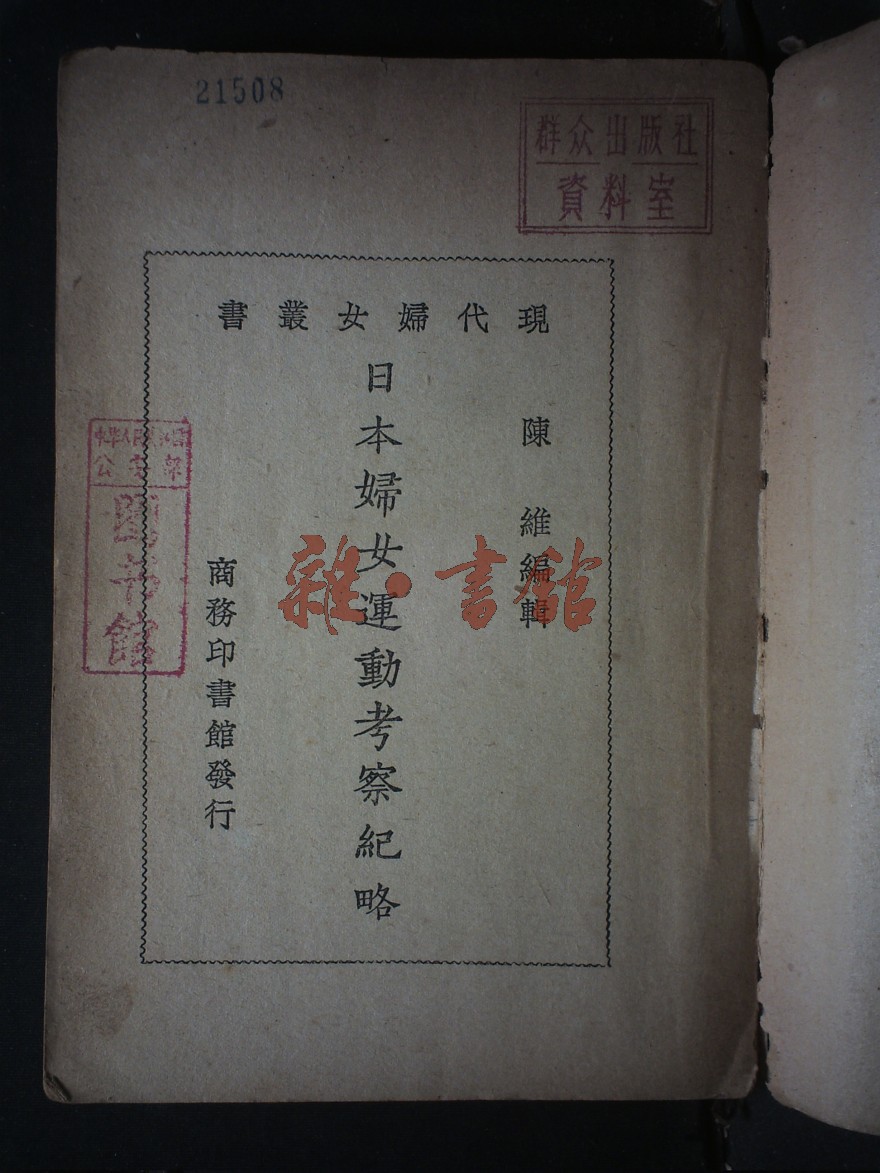 21508
群众出版社
資料室
現代婦女叢書
陳維編輯
日本婦女運動考察紀略
商務印書館發行
公安部
圖書館
雜·書館